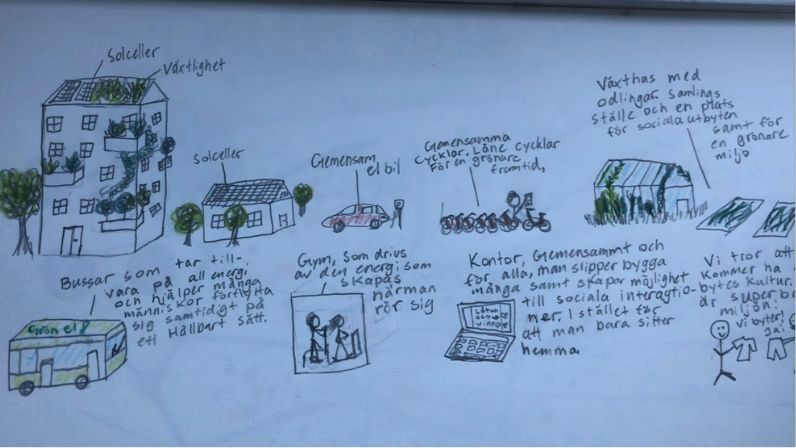 Solceller
Växtlighet
Solceller
Gemensam
elbil
Gemensamma
cycklar. Låne cycklar
För en grönare
framtid,
Växthas med
odlingar. samlings
ställe och en plats
för sociala utbyten
samt för
en grönare
miljö
Bussar som tar till-
vara på all energi
och hjälper många
människor förflytta
sig samtidigt på
ett Hållbart sätt.
Grön el
Gym, som drivs
av den energi som
skapas
när man
rör sig
Kontor, Gemensammt och
för alla, man slipper bygga
många samt skapar möjlighet
till sociala interagtio-
ner. I stället för
att man bara sitter
hemma.
Låtsas
och
Vi tror att
kommer ha
bytes kultur.
är super bra
miljön.
vi byter!
Ja!